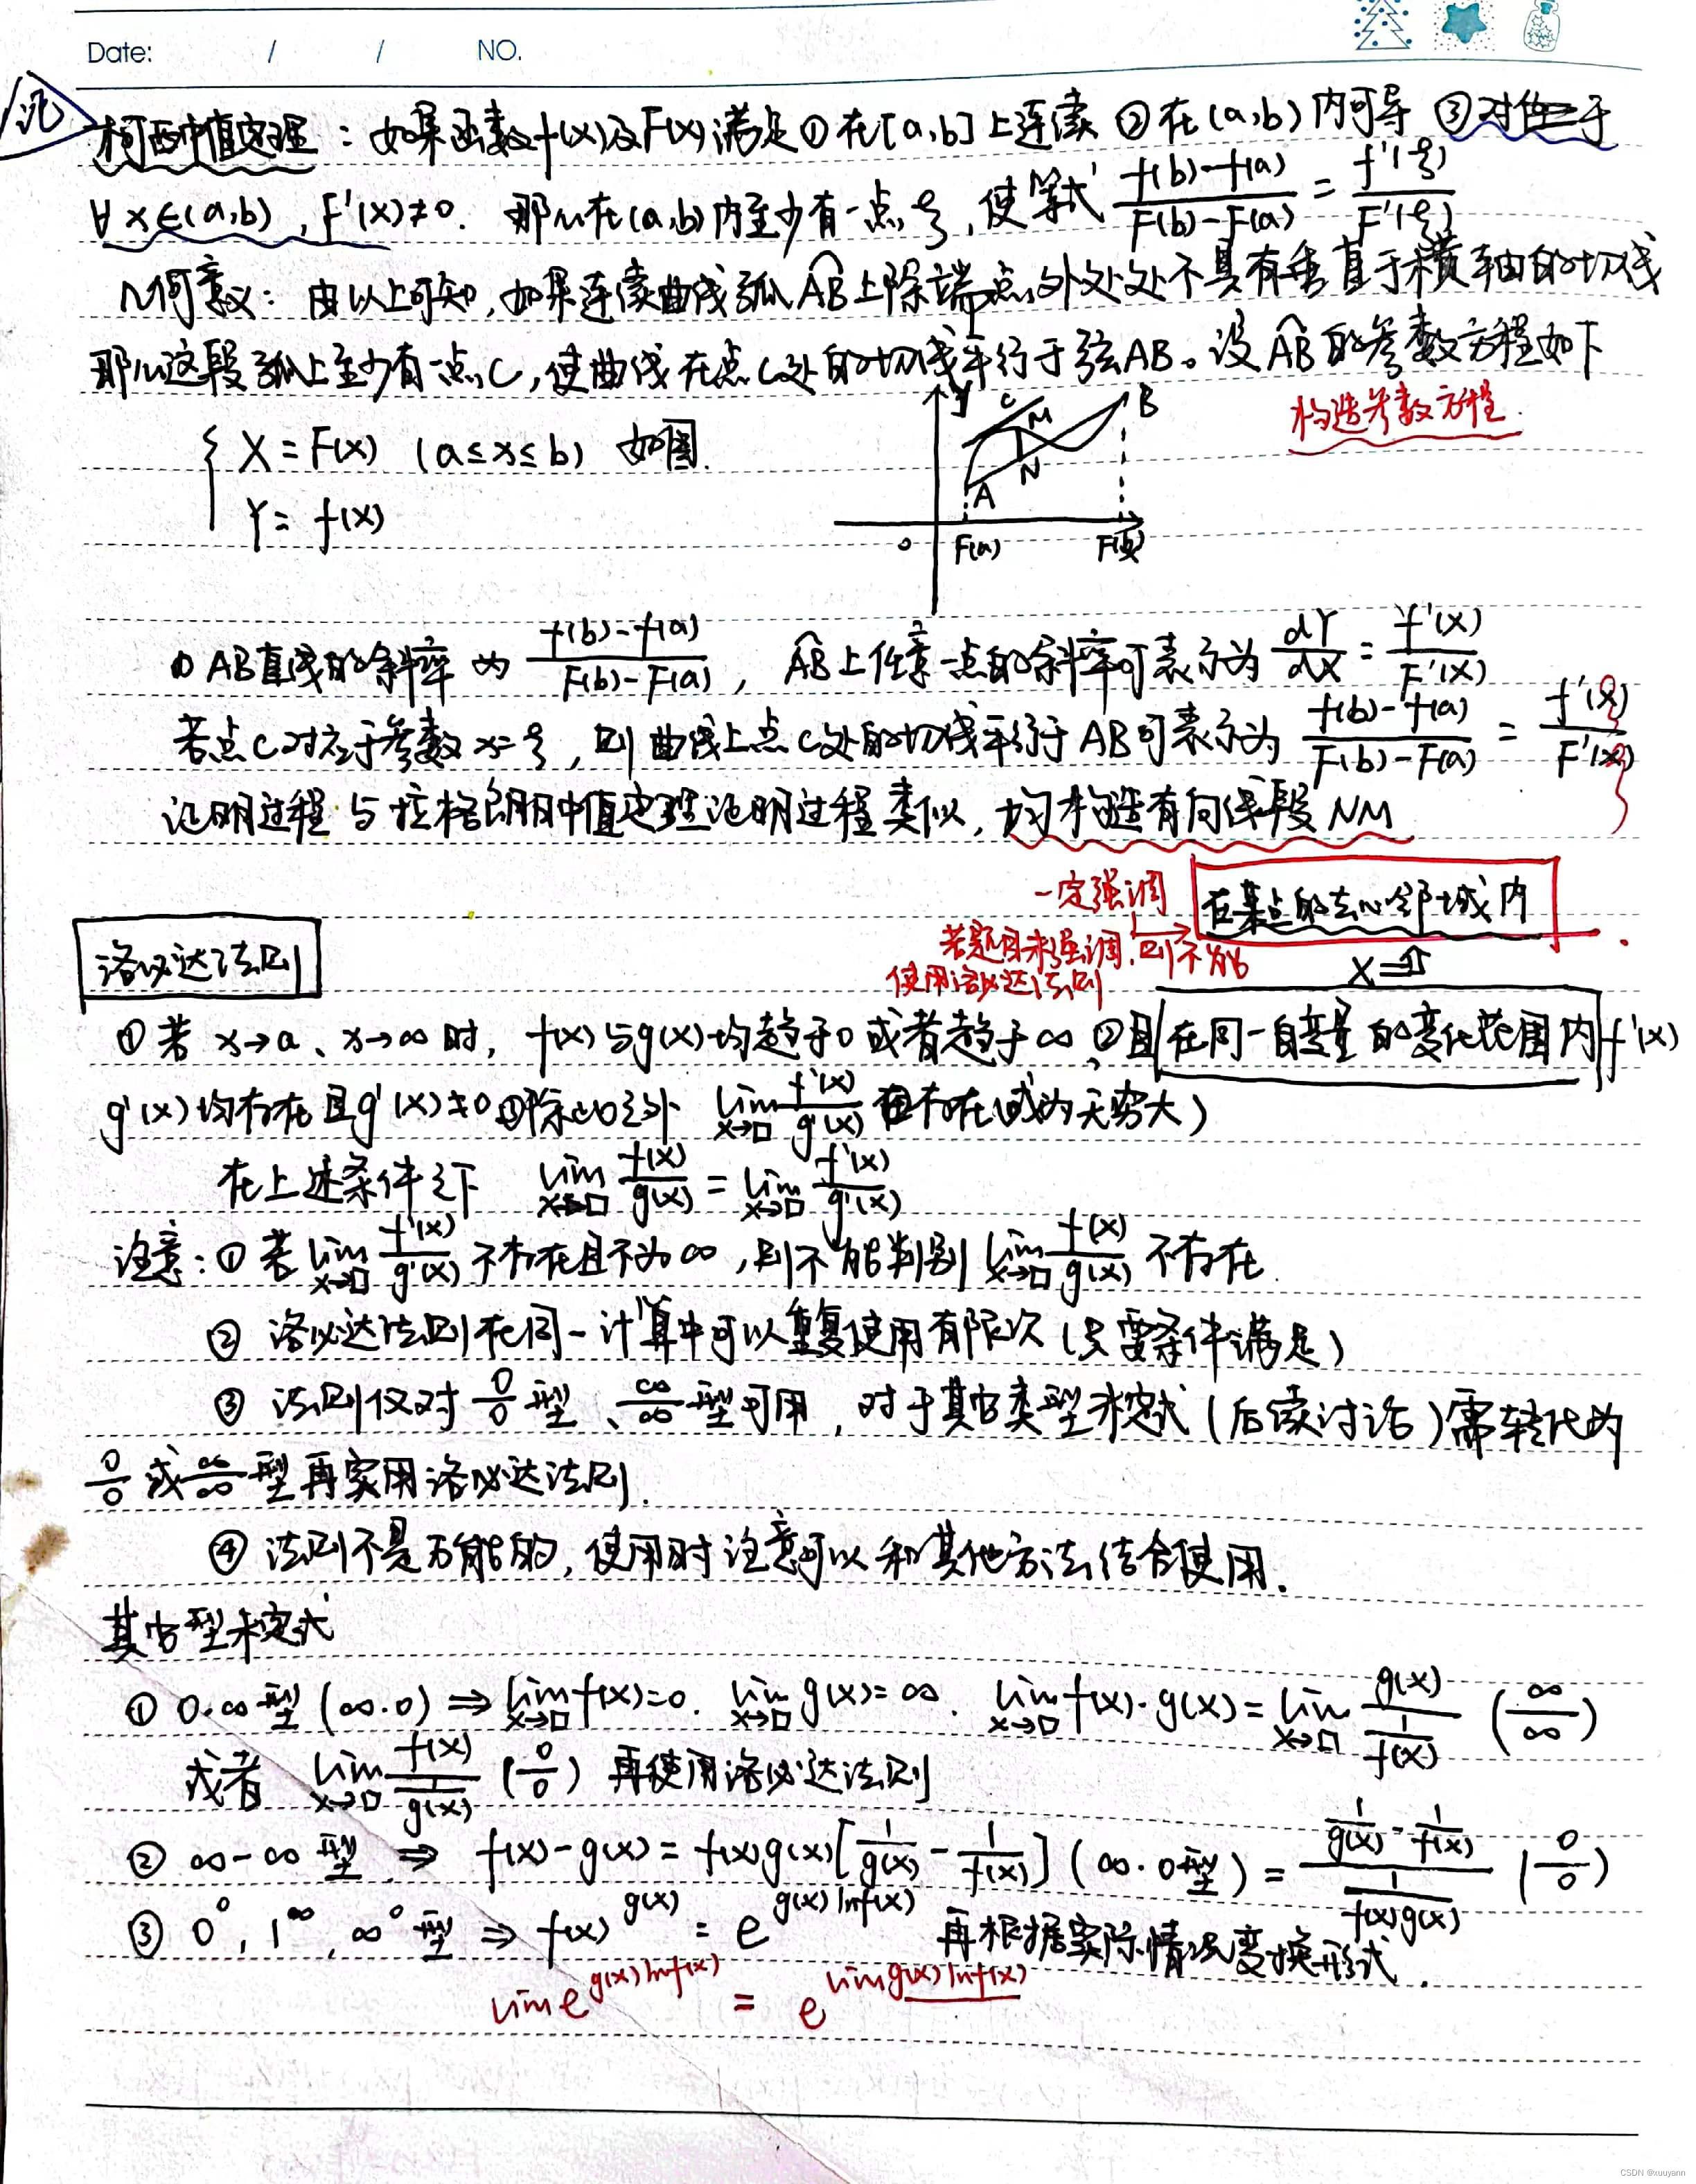 Date: / / NO.
记
柯西中值定理：如果函数f(x)及F(x)满足①在[a,b]上连续 ②在(a,b)内可导 ③对任于
∀x∈(a,b), F'(x)≠0. 那么在(a,b)内至少有一点ξ, 使等式 (f(b)-f(a))/(F(b)-F(a)) = f'(ξ)/F'(ξ)
几何意义：由以上可知, 如果连续曲线弧AB上除端点外处处不具有垂直于横轴的切线
那么这段弧上至少有一点C, 使曲线在点C处的切线平行于弦AB。设AB的参数方程如下
构造参数方程.
{ X = F(x) (a≤x≤b) 如图.
Y = f(x)
y C M B N A
0 F(a) F(b)
① AB直线的斜率为 (f(b)-f(a))/(F(b)-F(a)), AB上任意一点的斜率可表示为 dY/dX = f'(x)/F'(x)
若点C对应于参数x=ξ, 则曲线上点C处的切线平行于AB可表示为 (f(b)-f(a))/(F(b)-F(a)) = f'(ξ)/F'(ξ)
证明过程与拉格朗日中值定理证明过程类似, 均构造有向线段NM
一定强调 在某点的去心邻域内
若题目未强调, 则不能
使用洛必达法则
洛必达法则
①若 x→a、x→∞时, f(x)与g(x)均趋于0或者趋于∞, ②且在同一自变量的变化范围内f'(x)
g'(x)均存在且g'(x)≠0 ③除此之外 lim x→□ f'(x)/g'(x) 存在(或为无穷大)
在上述条件之下 lim x→□ f(x)/g(x) = lim x→□ f'(x)/g'(x)
注意：①若 lim x→□ f'(x)/g'(x) 不存在且不为∞, 则不能判别 lim x→□ f(x)/g(x) 不存在.
② 洛必达法则在同一计算中可以重复使用有限次(只要条件满足)
③ 法则仅对 0/0 型、∞/∞ 型可用, 对于其它类型未定式(后续讨论)需转化为
0/0 或 ∞/∞ 型再实用洛必达法则.
④ 法则不是万能的, 使用时注意可以和其他方法结合使用.
其它型未定式
① 0·∞型(∞·0) ⇒ lim x→□ f(x)=0. lim x→□ g(x)=∞. lim x→□ f(x)·g(x) = lim x→□ g(x)/(1/f(x)) (∞/∞)
或者 lim x→□ f(x)/(1/g(x)) (0/0) 再使用洛必达法则
② ∞-∞型 ⇒ f(x)-g(x) = f(x)g(x)[1/g(x) - 1/f(x)] (∞·0型) = (1/g(x) - 1/f(x))/(1/(f(x)g(x))) (0/0)
③ 0^0, 1^∞, ∞^0型 ⇒ f(x)^g(x) = e^(g(x)lnf(x)) 再根据实际情况变换形式.
lim e^(g(x)lnf(x)) = e^(lim g(x)lnf(x))
CSDN @xuuyann